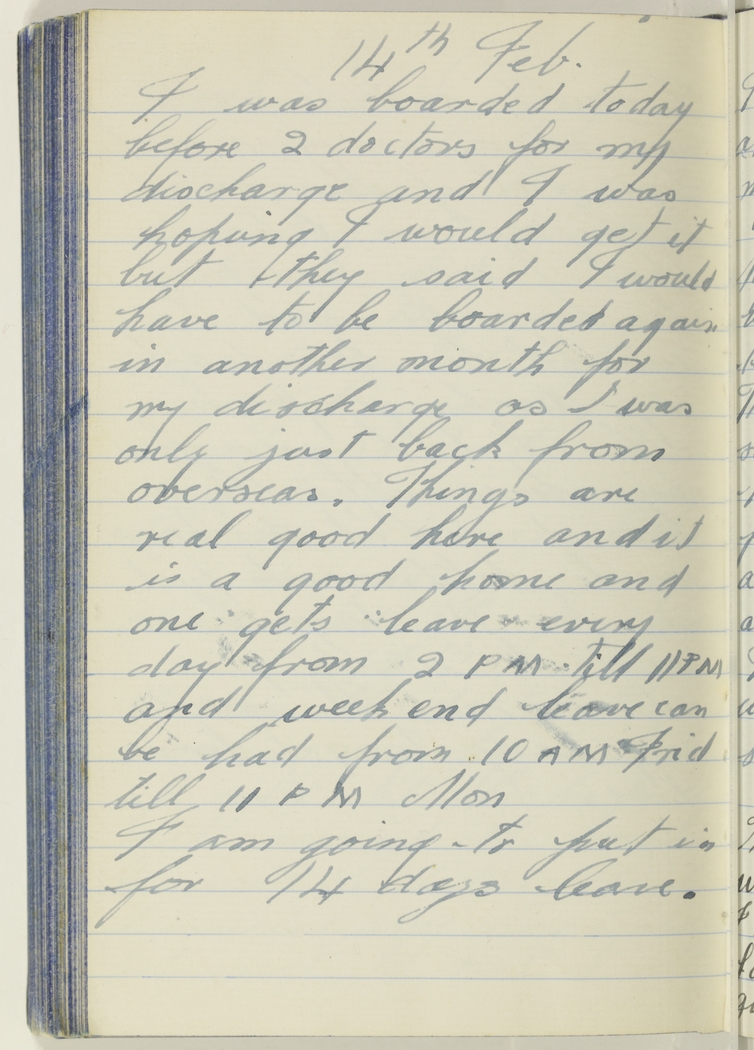 14th Feb.
I was boarded today
before 2 doctors for my
discharge and I was
hoping I would get it
but they said I would
have to be boarded again
in another month for
my discharge as I was
only just back from
overseas. Things are
real good here and it
is a good home and
one gets leave every
day from 2 PM till 11 PM
and week end leave can
be had from 10 AM Frid
till 11 P M Mon
I am going to put in
for 14 days leave.